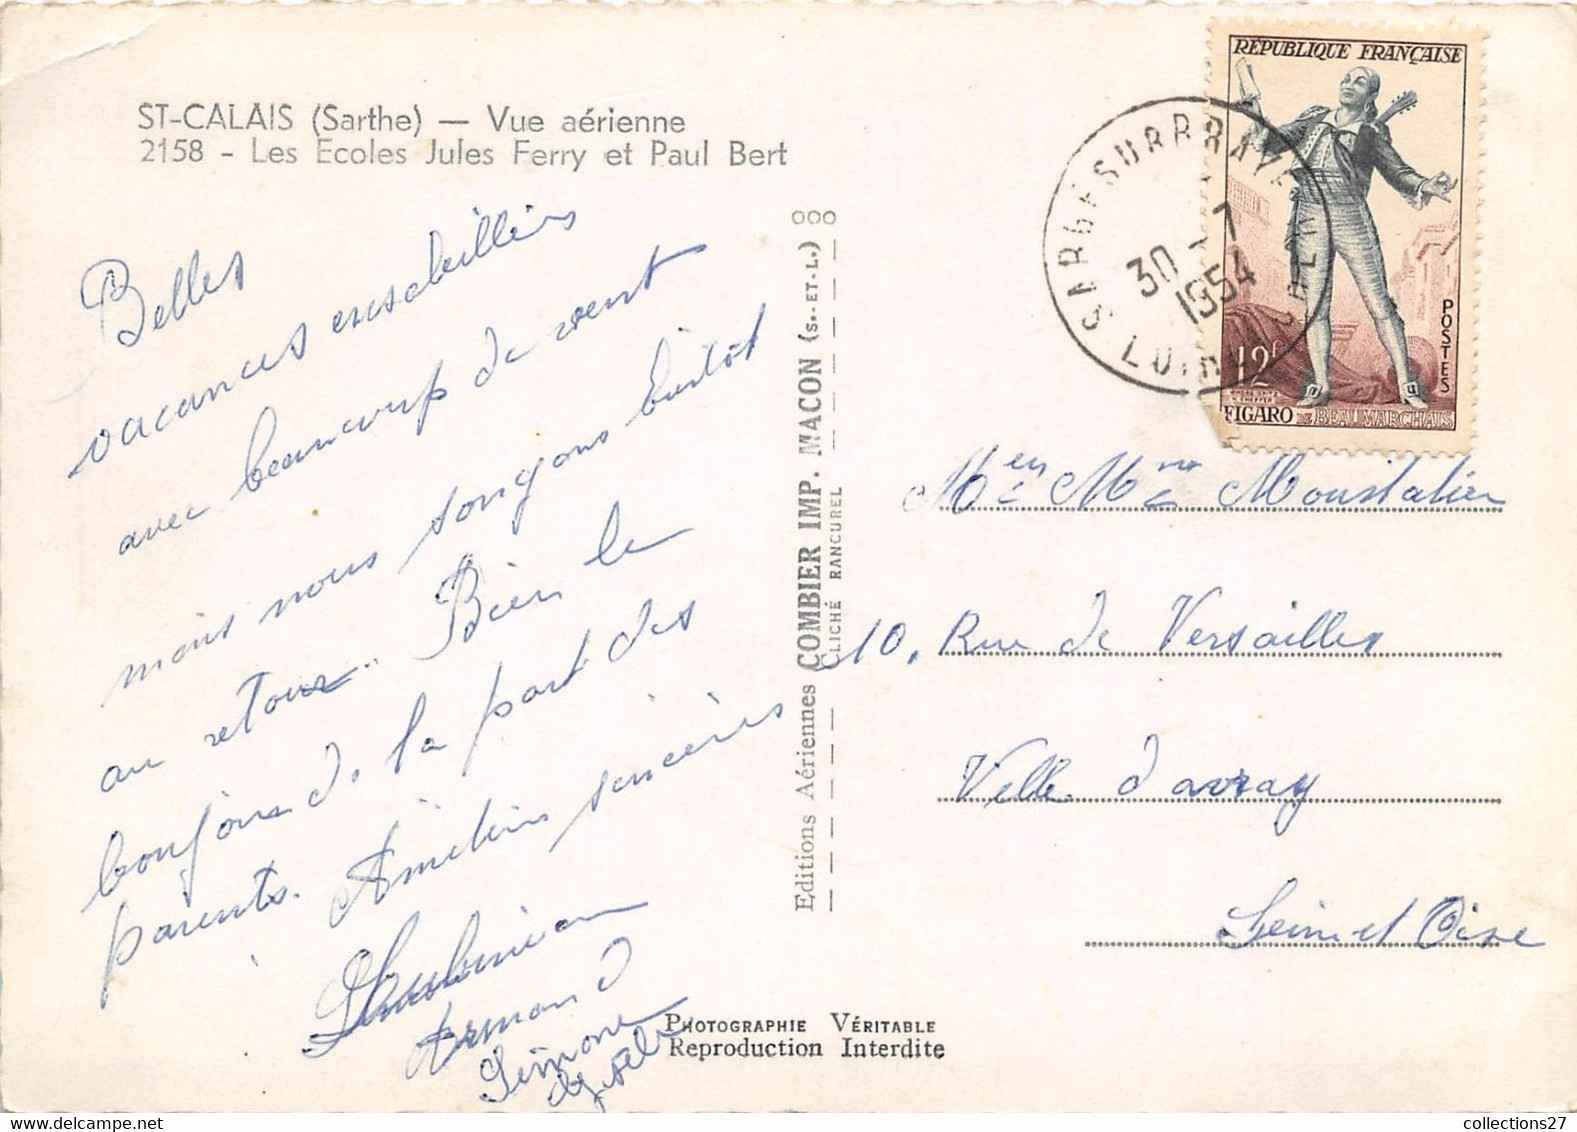 ST-CALAIS (Sarthe) — Vue aérienne
2158 - Les Ecoles Jules Ferry et Paul Bert
Belles
vacances ensoleillées
avec beaucoup de vent
mais nous songeons bientôt
au retour. Bien le
bonjour de la part des
parents. Amitiés sincères
Armand
Simone
Gisèle
Editions Aériennes COMBIER IMP. MACON (S.-ET-L.)
CLICHÉ RANCUREL
PHOTOGRAPHIE VÉRITABLE
Reproduction Interdite
RÉPUBLIQUE FRANÇAISE
POSTES
12f
FIGARO DE BEAUMARCHAIS
SARGE SUR BRAYE
30 - 7
1954
LOIR
CHER
Mr et Mme Moustalier
10, Rue de Versailles
Ville d'avray
Seine et Oise
collections27